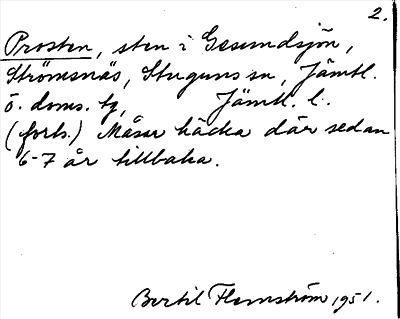 2.
Prosten, sten i Gesundsjön,
Strömsnäs, Stuguns sn, Jämtl.
ö. doms. tg, Jämtl. l.
(forts.) Måsar häcka där sedan
6-7 år tillbaka.
Bertil Flemström 1951.